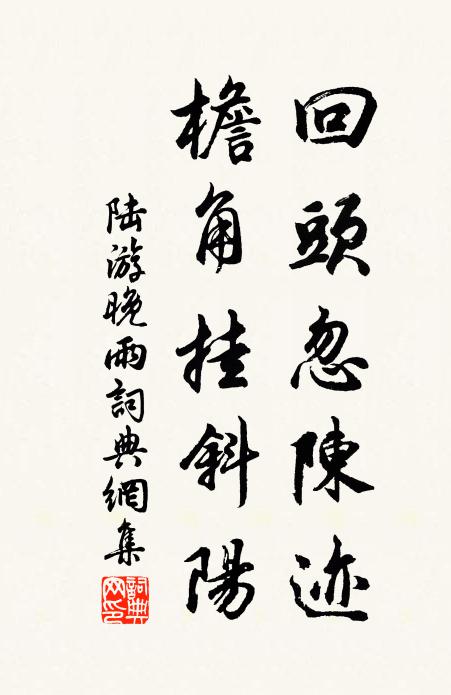 回頭忽陳迹
檐角挂斜陽
陸游晚雨詞典網集
詞典网印